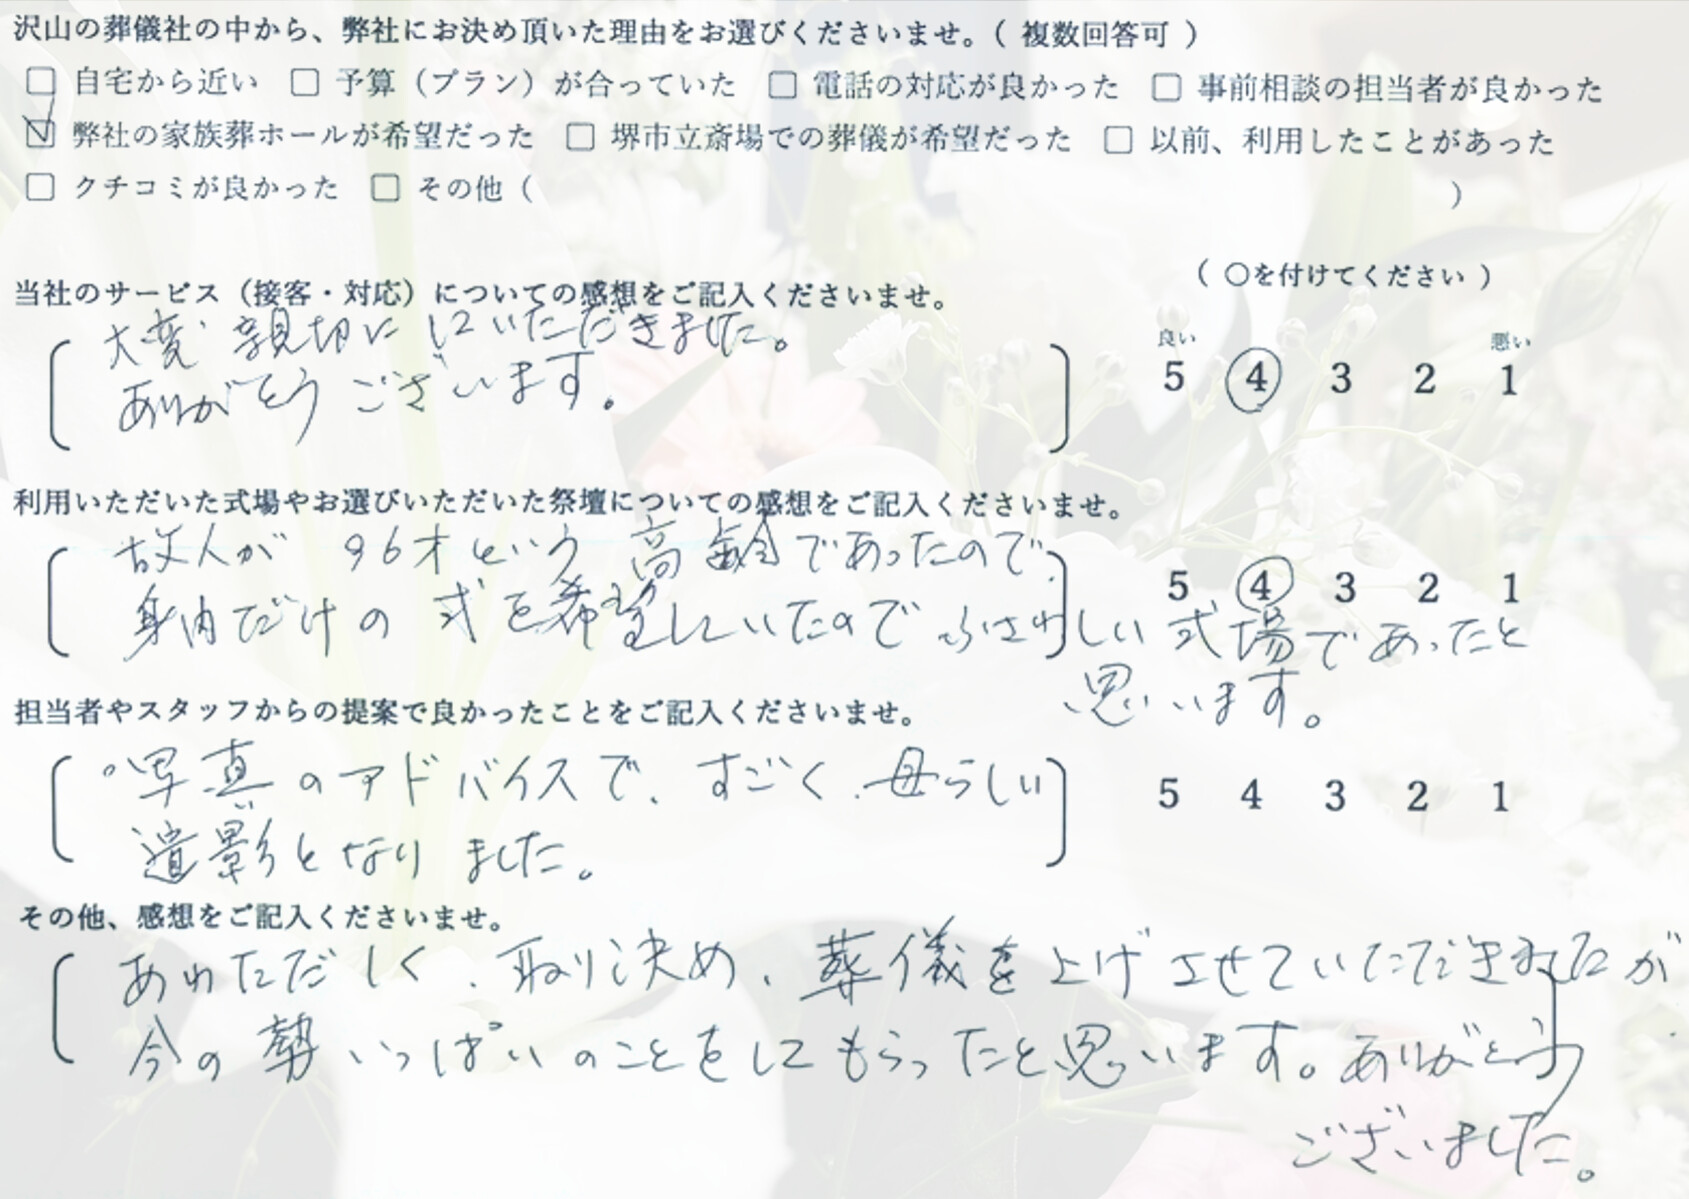 沢山の葬儀社の中から、弊社にお決め頂いた理由をお選びくださいませ。( 複数回答可 )
□ 自宅から近い □ 予算（プラン）が合っていた □ 電話の対応が良かった □ 事前相談の担当者が良かった
☑ 弊社の家族葬ホールが希望だった □ 堺市立斎場での葬儀が希望だった □ 以前、利用したことがあった
□ クチコミが良かった □ その他（ ）
当社のサービス（接客・対応）についての感想をご記入くださいませ。
( 〇を付けてください )
大変親切にしていただきました。
ありがとうございます。
良い 悪い
5 ④ 3 2 1
利用いただいた式場やお選びいただいた祭壇についての感想をご記入くださいませ。
故人が 96才という高齢であったので、
5 ④ 3 2 1
身内だけの式を希望していたのでふさわしい式場であったと
思います。
担当者やスタッフからの提案で良かったことをご記入くださいませ。
写真のアドバイスで、すごく、母らしい
5 4 3 2 1
遺影となりました。
その他、感想をご記入くださいませ。
あわただしく、取り決め、葬儀を上げさせていただきましたが
今の勢いっぱいのことをしてもらったと思います。ありがとう
ございました。